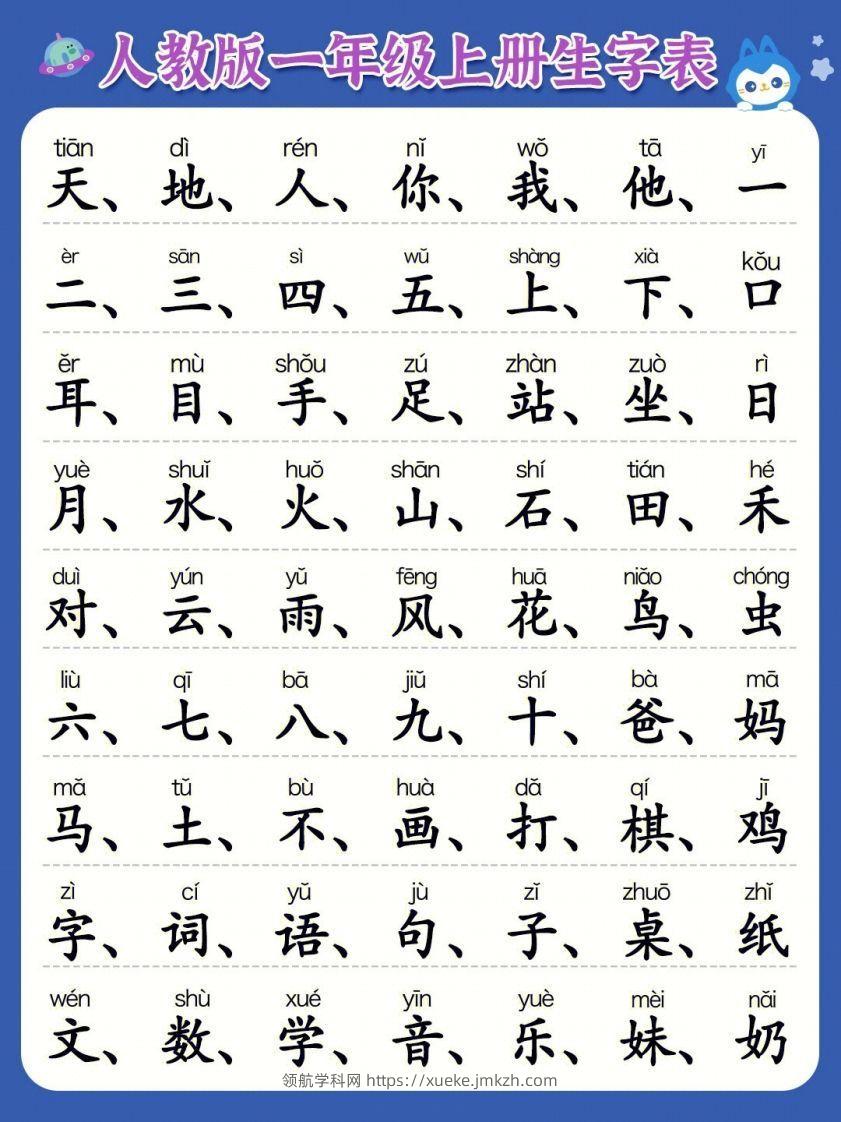 人教版一年级上册生字表
tiān dì rén nǐ wǒ tā yī
天、地、人、你、我、他、一
èr sān sì wǔ shàng xià kǒu
二、三、四、五、上、下、口
ěr mù shǒu zú zhàn zuò rì
耳、目、手、足、站、坐、日
yuè shuǐ huǒ shān shí tián hé
月、水、火、山、石、田、禾
duì yún yǔ fēng huā niǎo chóng
对、云、雨、风、花、鸟、虫
liù qī bā jiǔ shí bà mā
六、七、八、九、十、爸、妈
mǎ tǔ bù huà dǎ qí jī
马、土、不、画、打、棋、鸡
zì cí yǔ jù zǐ zhuō zhǐ
字、词、语、句、子、桌、纸
wén shù xué yīn yuè mèi nǎi
文、数、学、音、乐、妹、奶
领航学科网 https://xueke.jmkzh.com